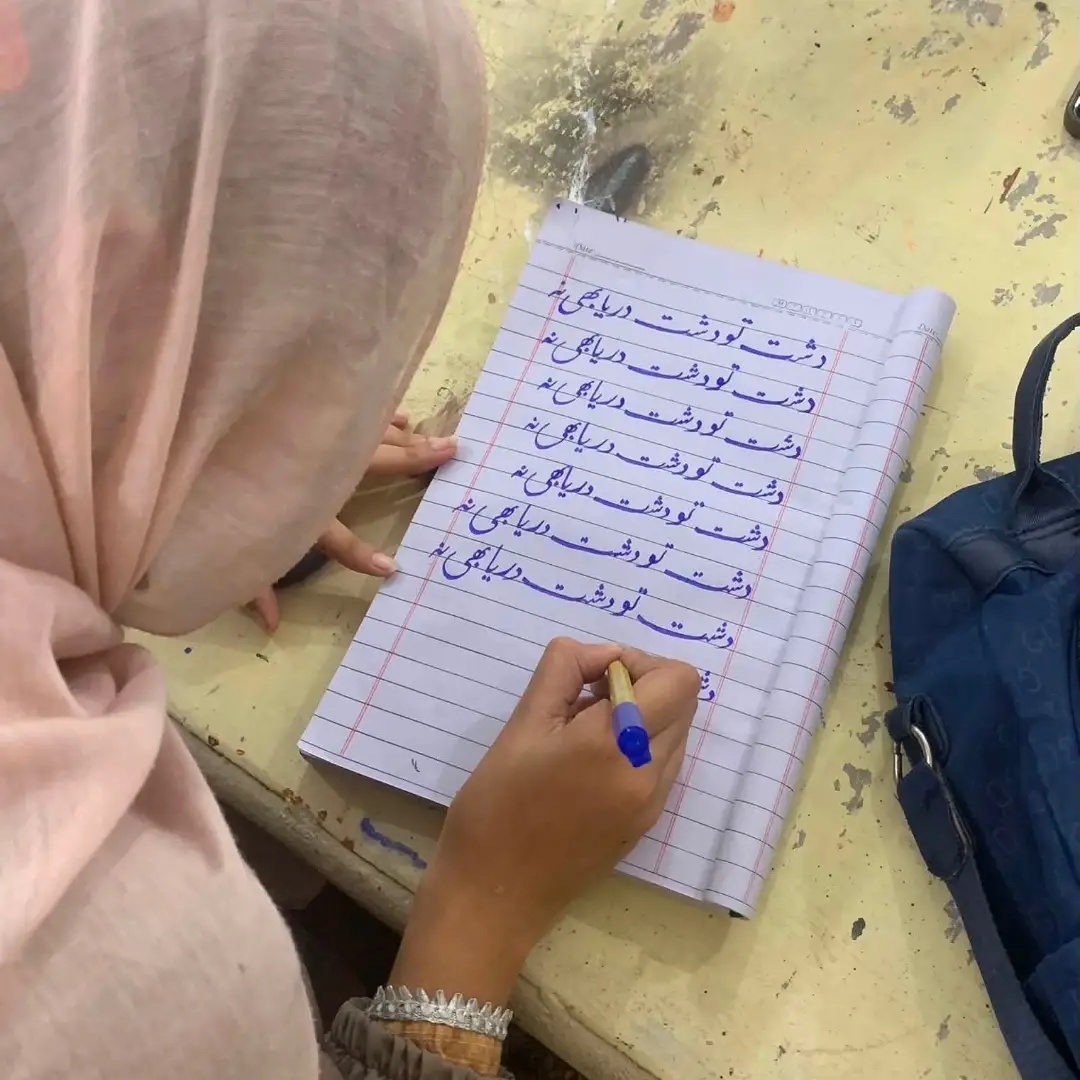 Date
Date
دشت تو دشت دریا بھی نہ
دشت تو دشت دریا بھی نہ
دشت تو دشت دریا بھی نہ
دشت تو دشت دریا بھی نہ
دشت تو دشت دریا بھی نہ
دشت تو دشت دریا بھی نہ
دشت تو دشت دریا بھی نہ